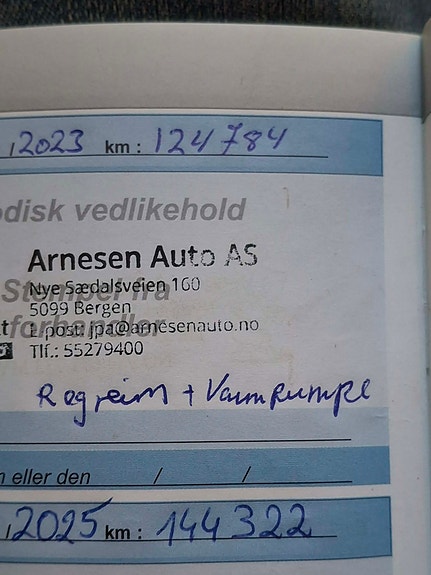 , 2023 km : 124 784
odisk vedlikehold
Arnesen Auto AS
Stempel fra
Nye Sædalsveien 100
5099 Bergen
forhandler
E.post: jpa@arnesenauto.no
Tlf.: 55279400
Regreim + Vannpumpe
n eller den / /
, 2025 km : 144 322